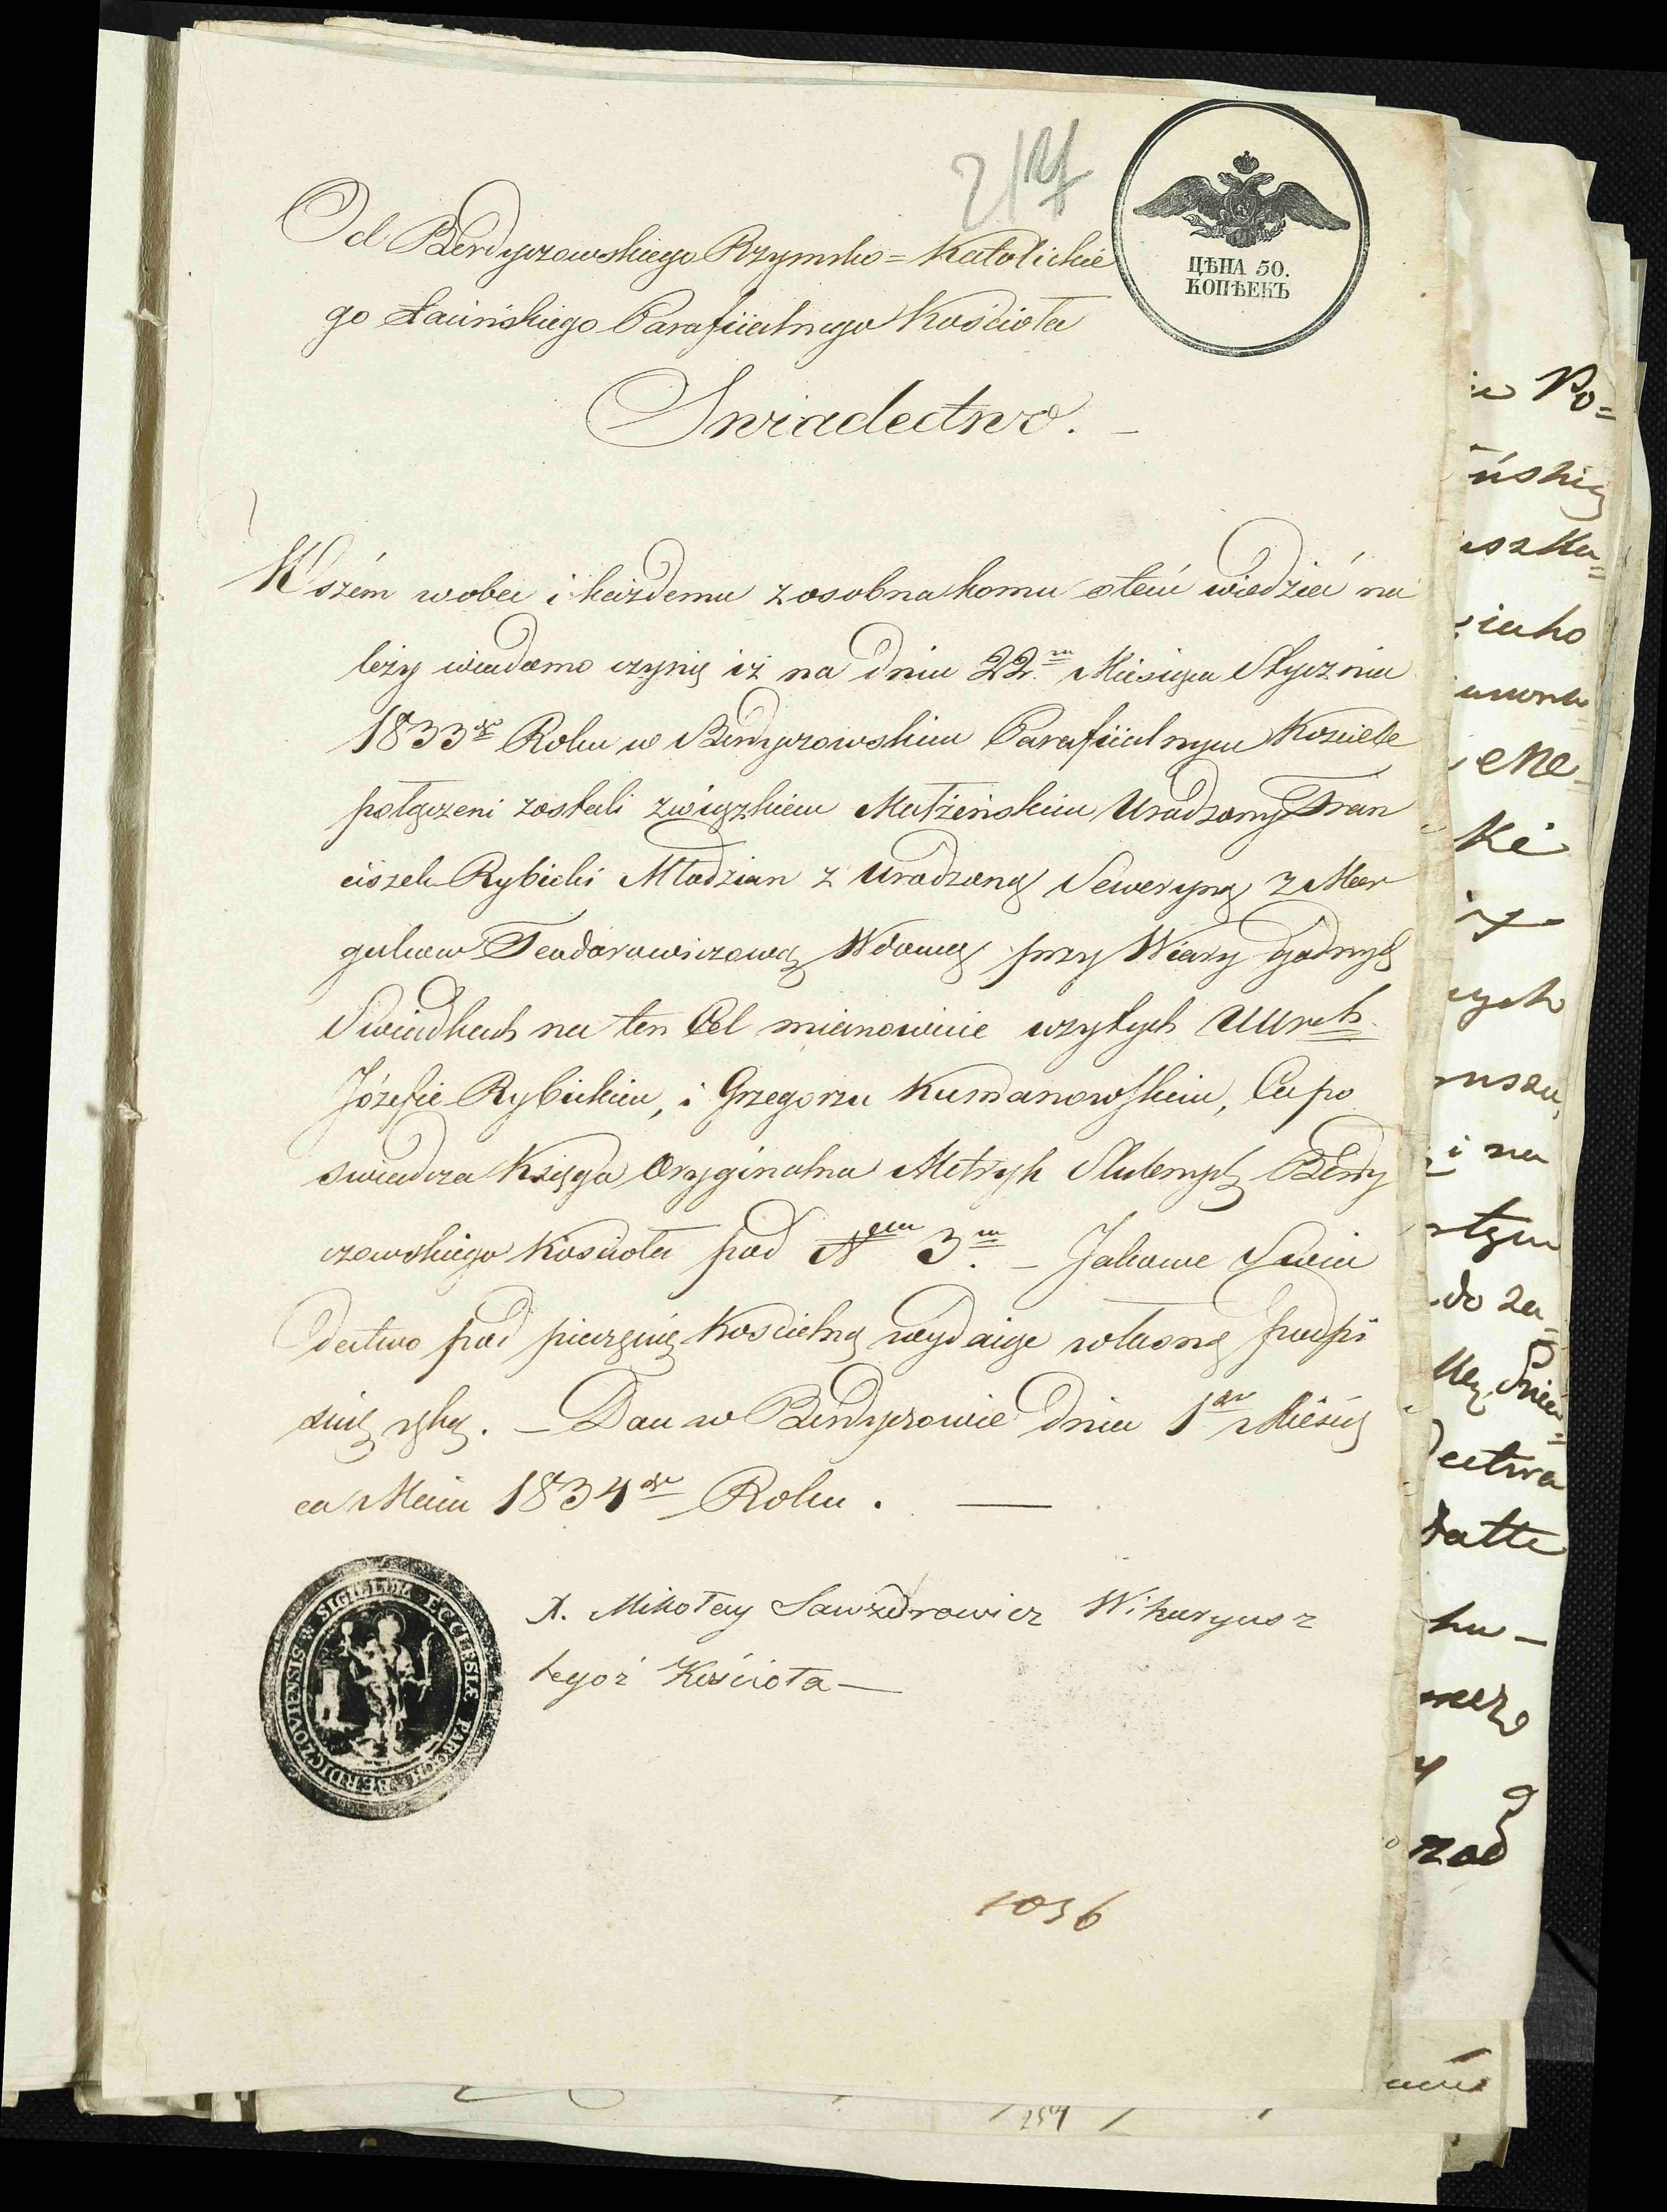 Od Berdyczowskiego Rzymsko=Katolickie
go Łacińskiego Parafiialnego Kościoła
ЦѢНА 50.
КОПѢЕКЪ
Swiadectwo. –
Wszém wobec i każdemu z osobna komu otém wiedzieć na
leży wiadomo czynię iż na dniu 22.m Miesiąca Stycznia
1833go Roku w Berdyczowskim Parafiialnym Kosciele
połączeni zostali związkiem Małżeńskim Urodzony Fran
ciszek Rybicki Młodzian z Urodzoną Seweryną z Mar
gulcow Teodorowiczową Wdową przy Wiary godnych
Swiadkach na ten Cel mianowicie wzytych UUrch
Józefie Rybickim, i Grzegorzu Kumanowskim, Co po
swiadcza Księga Oryginalna Metryk Slubnych Berdy
czowskiego Kościoła pod Nem 3.m – Jakowe Swia
dectwo pod pieczęcią Koscielną wydaige własną podpi
suię ręką. – Dan w Berdyczowie Dnia 1go Miesią
ca Maia 1834go Roku. —
SIGILLUM ECCLESIÆ PAROCH BERDICZOVIENSIS
X. Mikołay Sawzdrowicz Wikaryusz
tegoż Kościoła —
1036
Po=
do za
Dectwa
zad
257